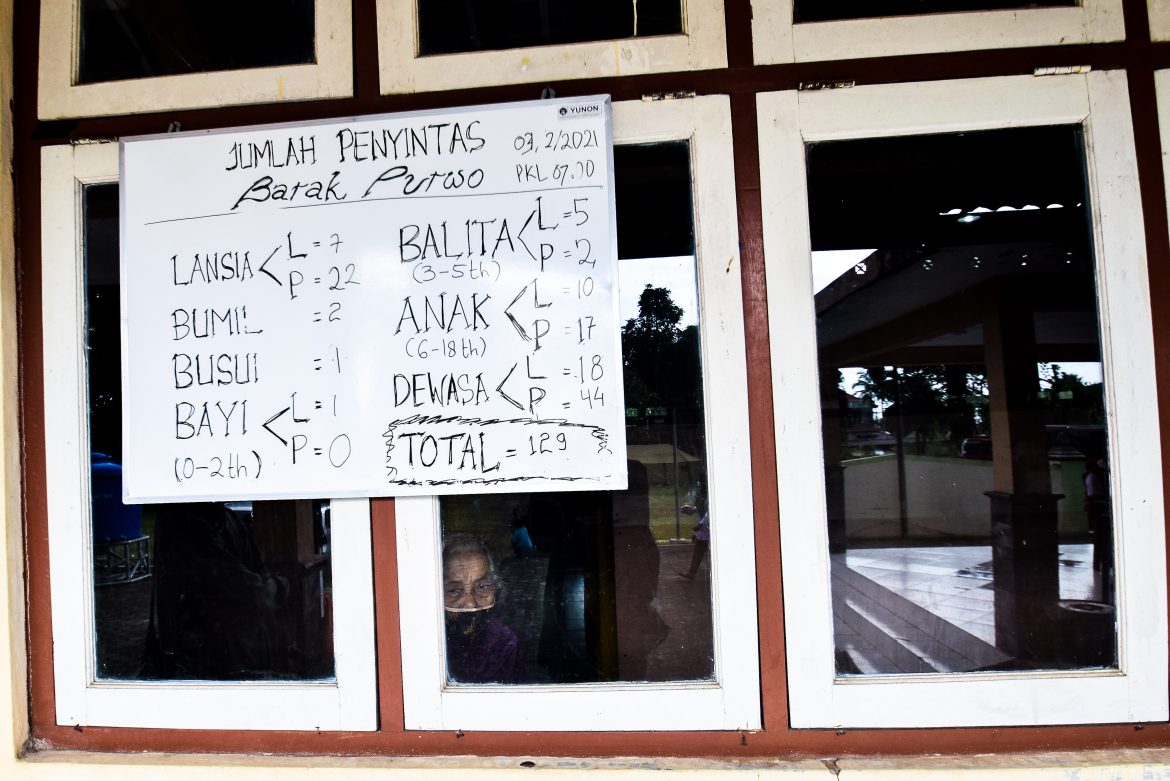 YUNON
JUMLAH PENYINTAS
Barak Purwo
03, 2/2021
PKL 07.00
LANSIA < L = 7
P = 22
BUMIL = 2
BUSUI = 1
BAYI < L = 1
(0-2th) P = 0
BALITA < L = 5
(3-5th) P = 2
ANAK < L = 10
(6-18th) P = 17
DEWASA < L = 18
P = 44
TOTAL = 129